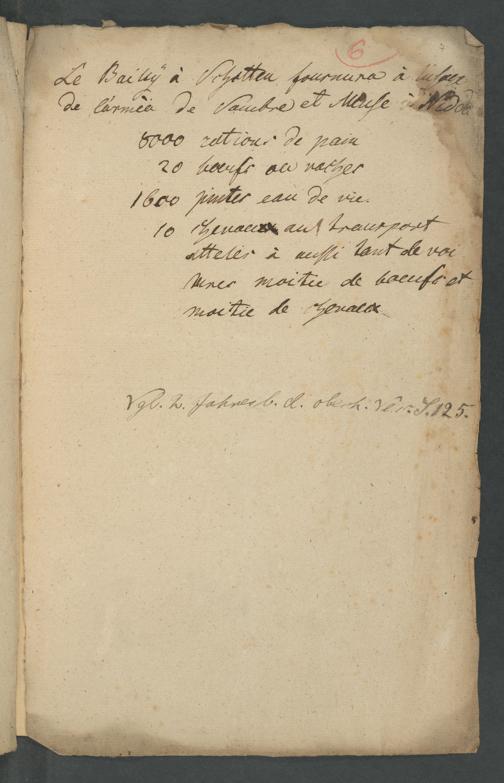 6
Le Bailly à Schotten fournira à
de l'arméa de Sambre et Meuse à Nidda
8000 rations de pain
20 boeufs ou vaches
1600 pintes eau de vie.
10 chevaux au transport
attelés à aussi tant de voi
tures moitie de boeufs et
moitie de chevaux
Vgl. 2. Jahresb. d. oberh. Ver. S. 125.